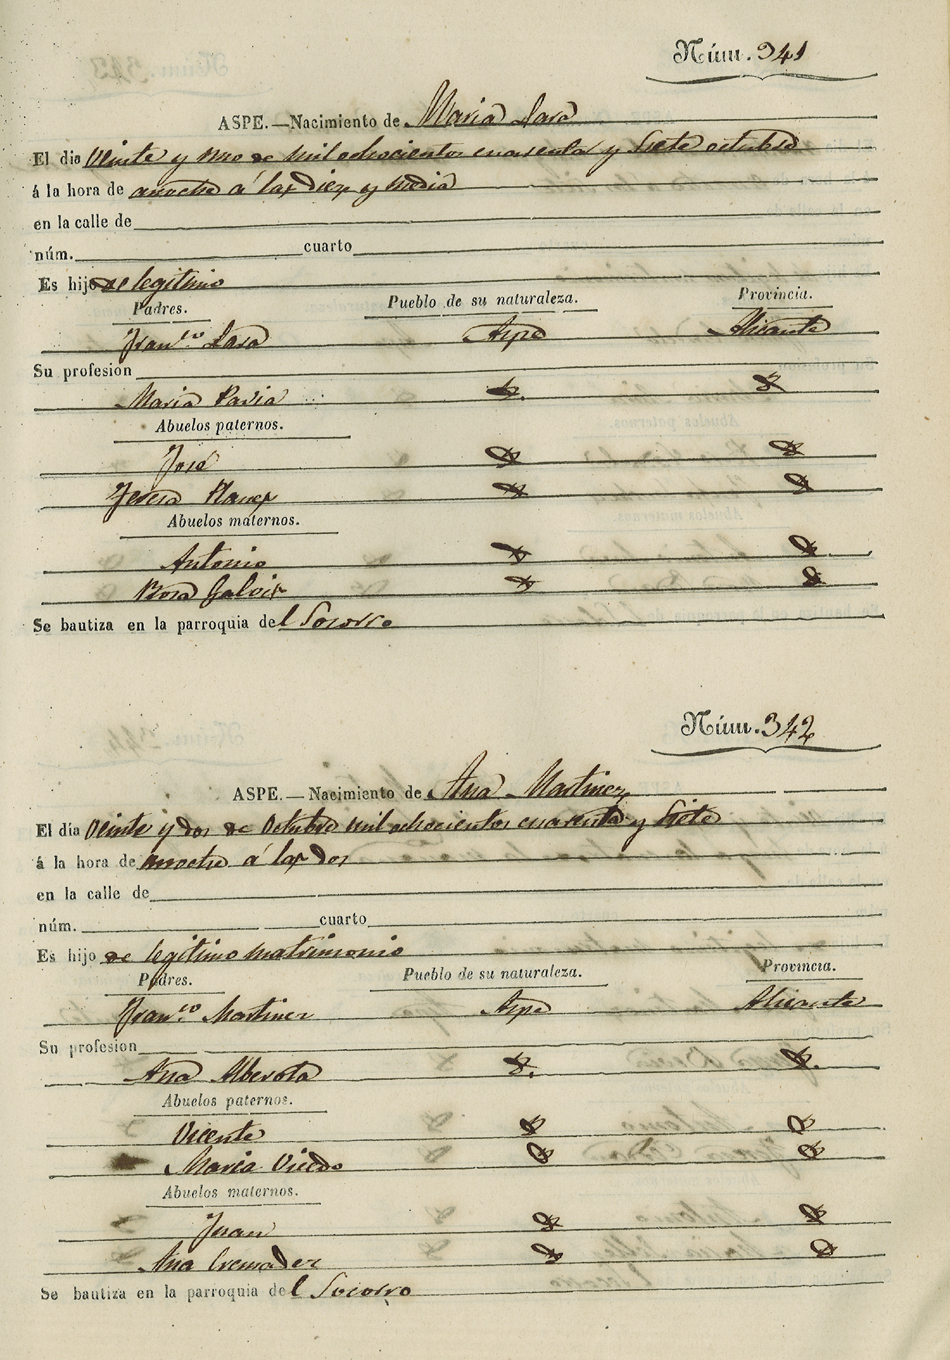 Núm. 341
ASPE.—Nacimiento de Maria Lara
El dia Veinte y uno de mil ochocientos cuarenta y Siete octubre
á la hora de anoche á las Diez y Media
en la calle de
núm. cuarto
Es hijo de legitimo
Padres. Pueblo de su naturaleza. Provincia.
Franco. Lara Aspe Alicante
Su profesion
Maria Pavia
Abuelos paternos.
José
Teresa
Abuelos maternos.
Antonio
Rosa Galvis
Se bautiza en la parroquia del Socorro
Núm. 342
ASPE.—Nacimiento de Ana Martinez
El día Veinte y dos de Octubre mil ochocientos cuarenta y Siete
á la hora de anoche á las Dos
en la calle de
núm. cuarto
Es hijo de legitimo matrimonio
Padres. Pueblo de su naturaleza. Provincia.
Franco. Martinez Aspe Alicante
Su profesion
Ana Alberola
Abuelos paternos.
Vicente
Maria Viedo
Abuelos maternos.
Juan
Ana Cremades
Se bautiza en la parroquia del Socorro